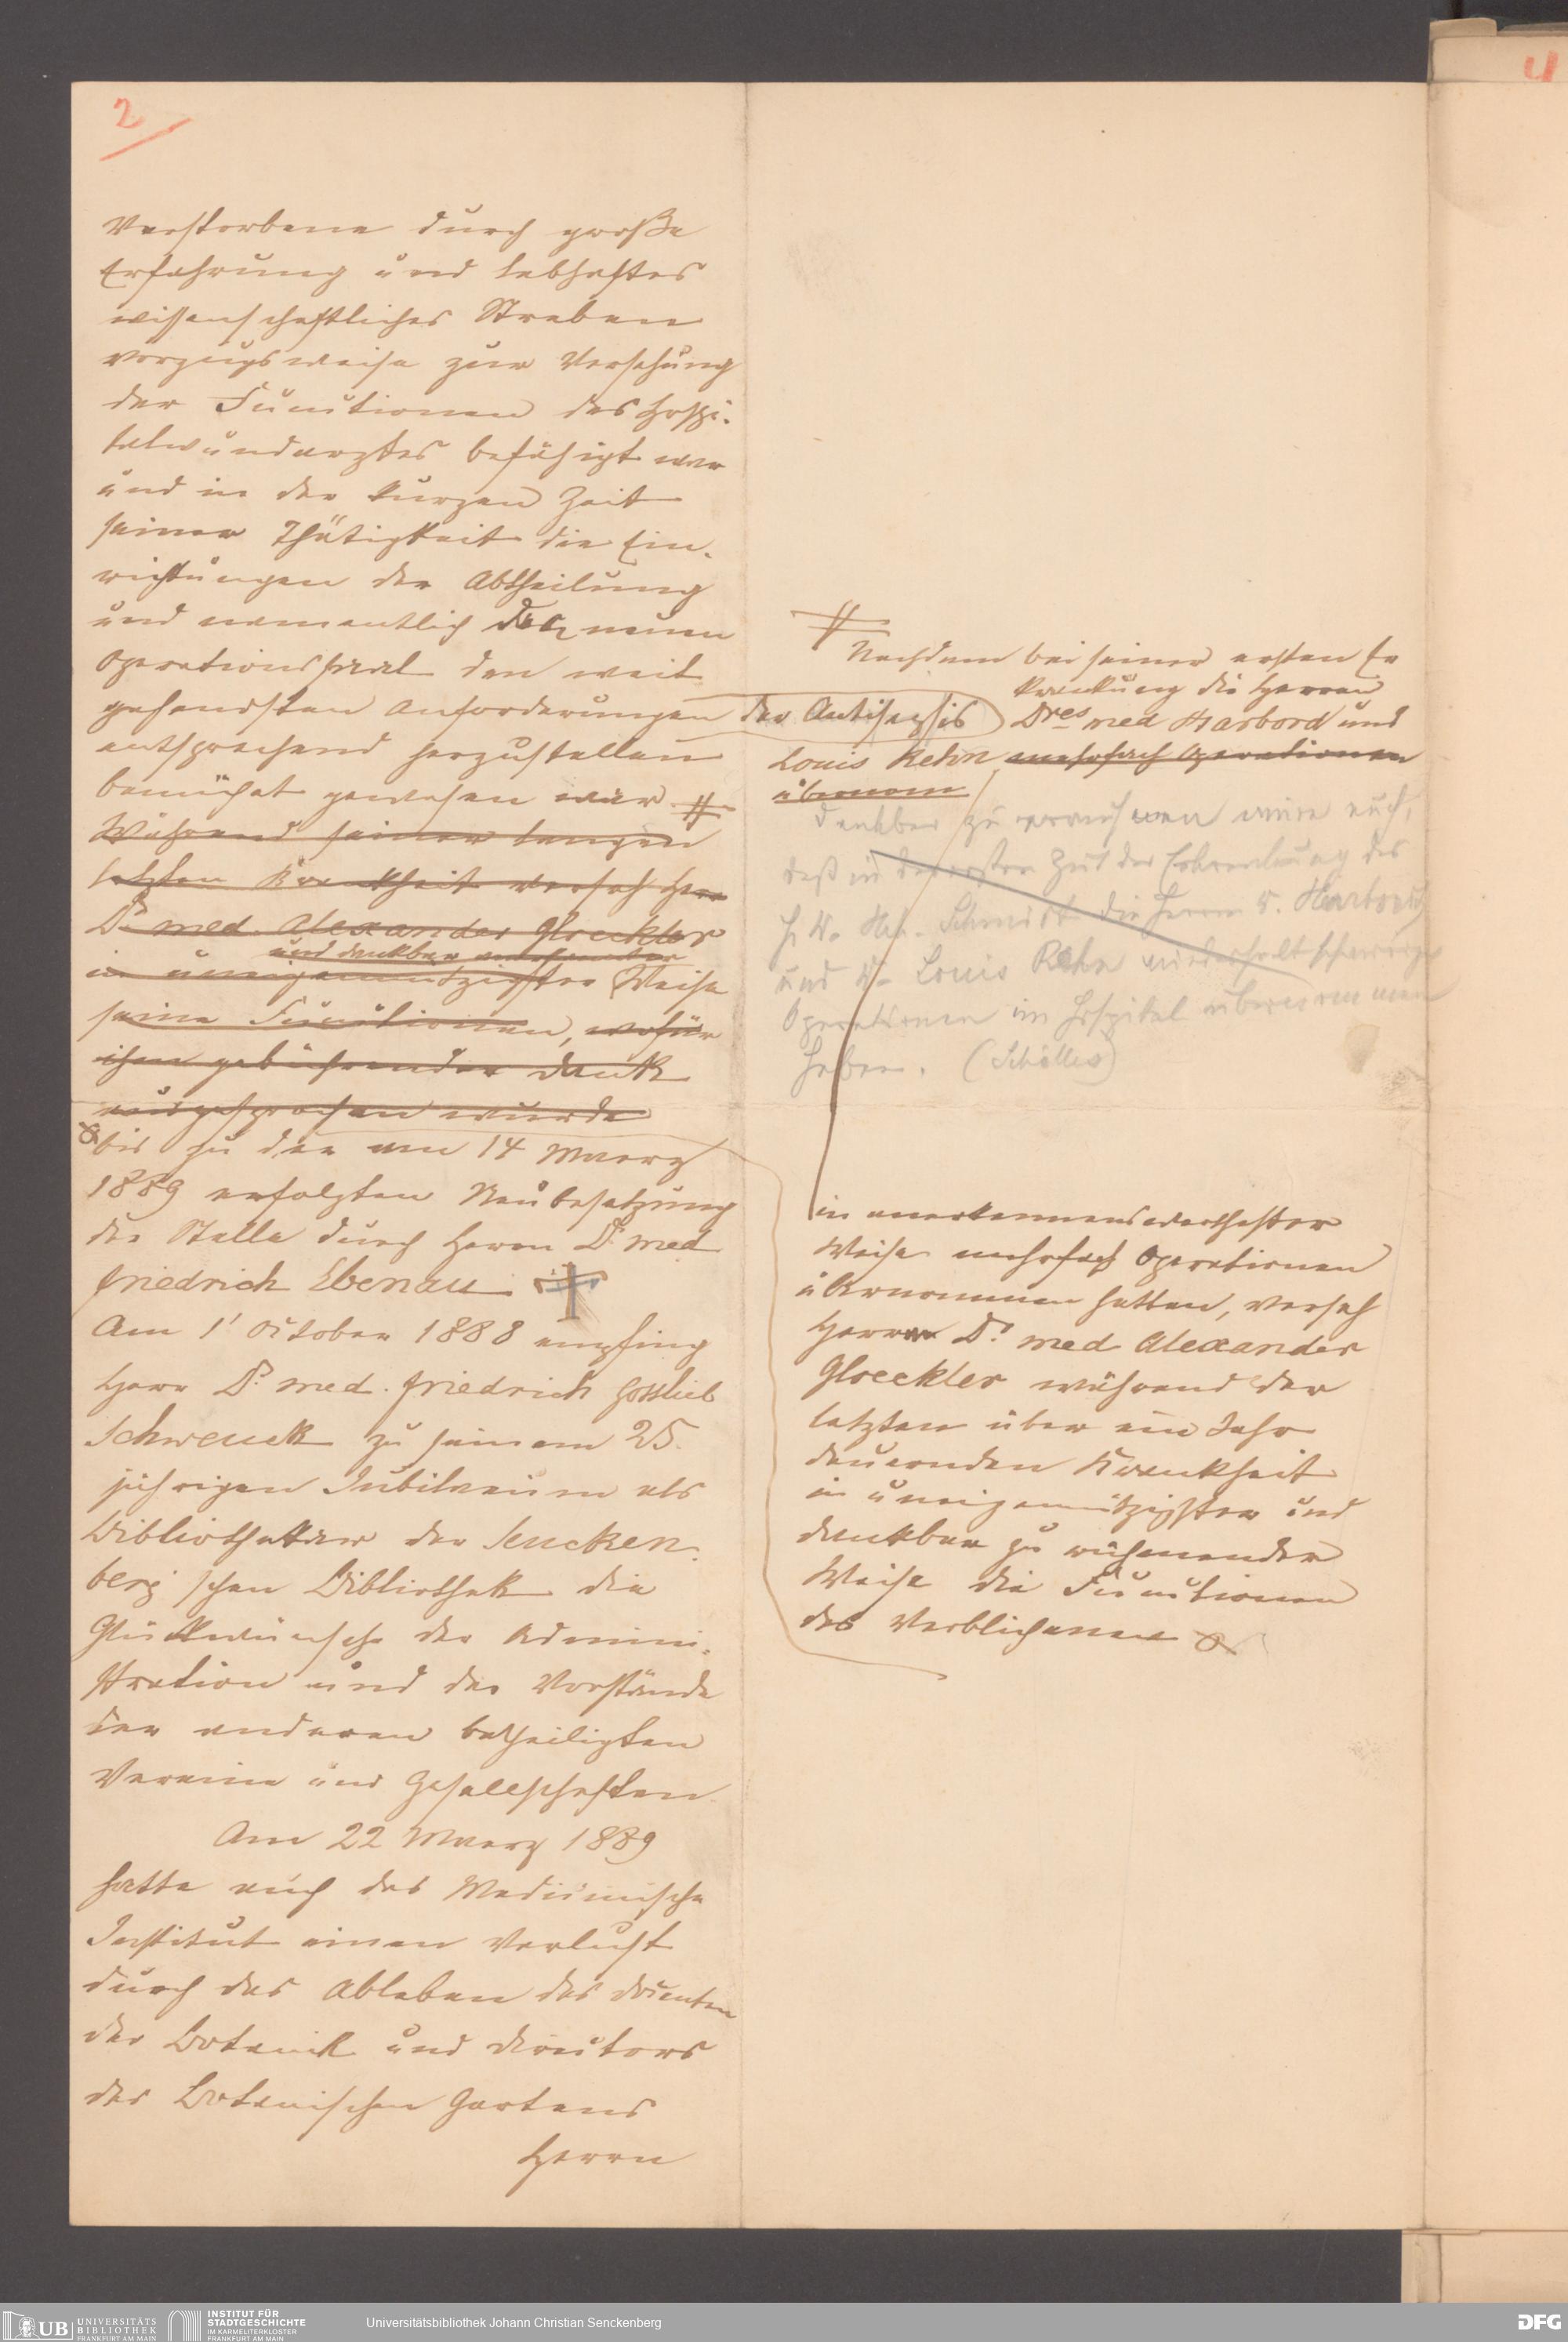 2
Verstorbene durch große
Erfahrung und lebhaftes
wissenschaftliches Streben
vorzugsweise zur Versehung
der Functionen des Hospi-
talwundarztes befähigt war
und in der kurzen Zeit
seiner Thätigkeit die Ein-
richtungen der Abtheilung
und namentlich den neuen
Operationssaal den weit
gehendsten Anforderungen der Antisepsis
entsprechend herzustellen
bemühet gewesen war #
Während seiner langen
letzten Krankheit versah Herr
Dr. med. Alexander Gloeckler
und dankbar
in uneigennützigster Weise
seine Functionen, wofür
ihm gebührender Dank
ausgesprochen wurde
bis zu der am 14 Maerz
1889 erfolgten Neubesetzung
der Stelle durch Herrn Dr. med
Friedrich Ebenau
Am 1' October 1888 empfing
Herr Dr. med. Friedrich Gottlieb
Schwenck zu seinem 25.
jährigen Jubilaeum als
Bibliothekar der Sencken-
berg'schen Bibliothek die
Glückwünsche der Admini-
stration und der Vorstände
der anderen betheiligten
Vereine und Gesellschaften.
Am 22 Maerz 1889
hatte auch das Medicinische
Institut einen Verlust
durch das Ableben des Docenten
der Botanik und Directors
des Botanischen Gartens
Herrn
#
Nachdem bei seiner ersten Er
krankung die Herren
Dres med Harbordt und
Louis Rehn mehrfach Operationen
übernom
dankbar zu wäre auch,
daß in der ersten Zeit der Erkrankung des
H. Dr. Schmidt die Herrn Dr. Harbordt
und Dr. Louis Rehn wiederholt schwierige
Operationen im Hospital übernommen
haben. (Schölles)
in anerkennenswerthester
Weise mehrfach Operationen
übernommen hatten, versah
Herr Dr. med Alexander
Gloeckler während der
letzten über ein Jahr
dauernden Krankheit
in uneigennützigster und
dankbar zu rühmender
Weise die Functionen
des Verblichenen
4
UB UNIVERSITÄTS
BIBLIOTHEK
FRANKFURT AM MAIN
INSTITUT FÜR
STADTGESCHICHTE
IM KARMELITERKLOSTER
FRANKFURT AM MAIN
Universitätsbibliothek Johann Christian Senckenberg
DFG